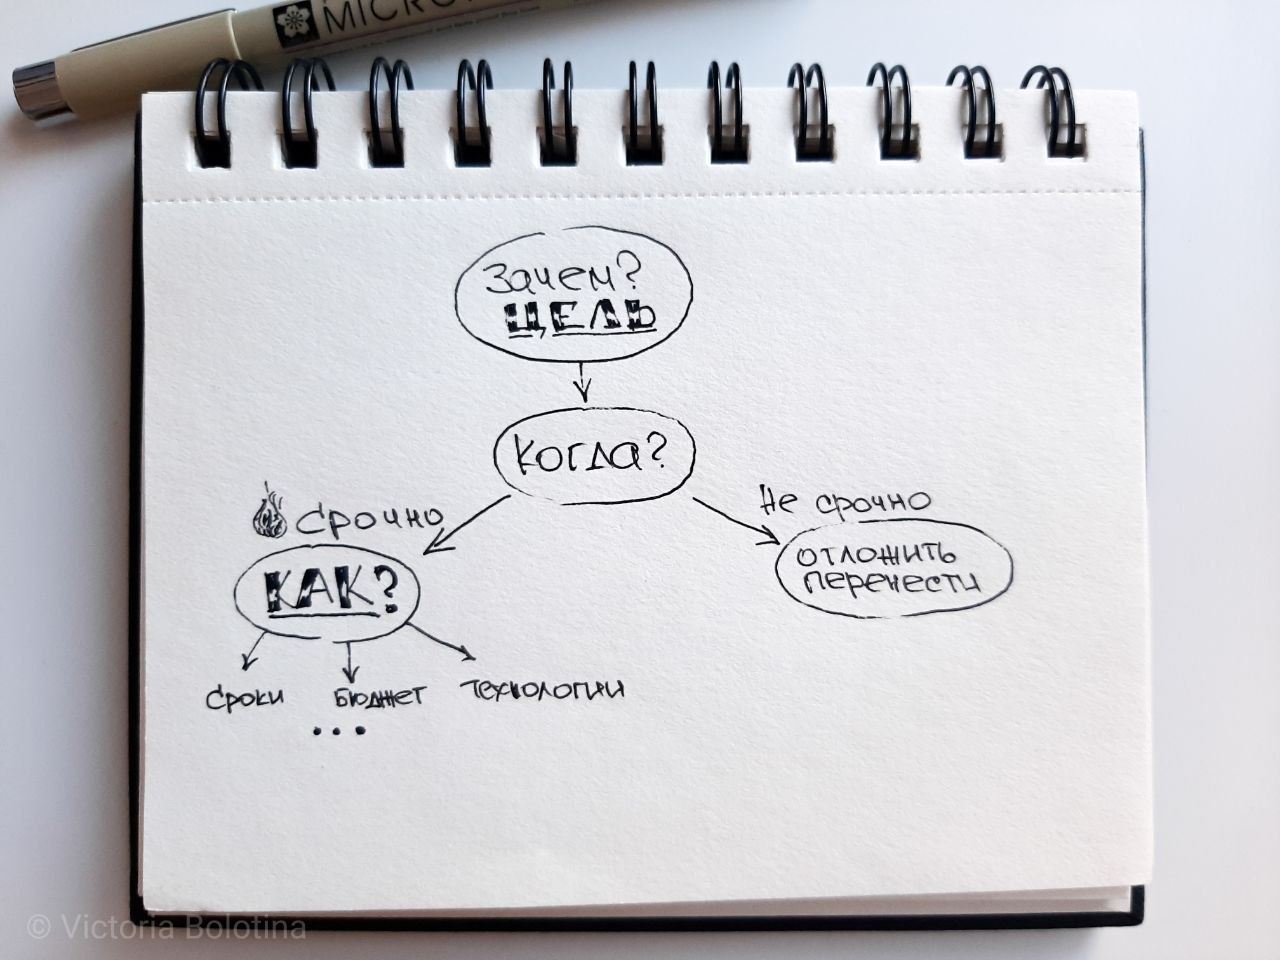 MICRO
Зачем?
ЦЕЛЬ
Когда?
Срочно
Не срочно
КАК?
отложить
перенести
Сроки
Бюджет
Технологии
...
© Victoria Bolotina